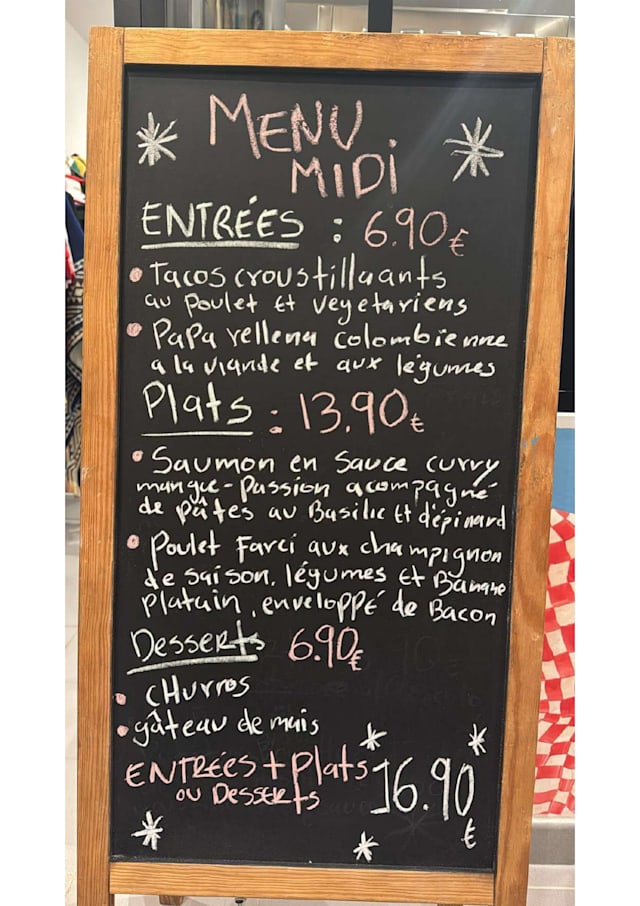 MENU
MIDI
ENTRÉES : 6.90€
• Tacos croustillaants
au poulet et vegetariens
• Papa rellena colombienne
a la viande et aux légumes
Plats : 13.90€
• Saumon en sauce curry
mangue-Passion acompagné
de pâtes au Basilic Et d'épinard
• Poulet Farci aux champignon
de saison, légumes Et Banane
Platain, enveloppé de Bacon
Desserts 6.90€
• CHurros
• gâteau de mais
ENTRÉES + Plats
ou Desserts 16.90
€